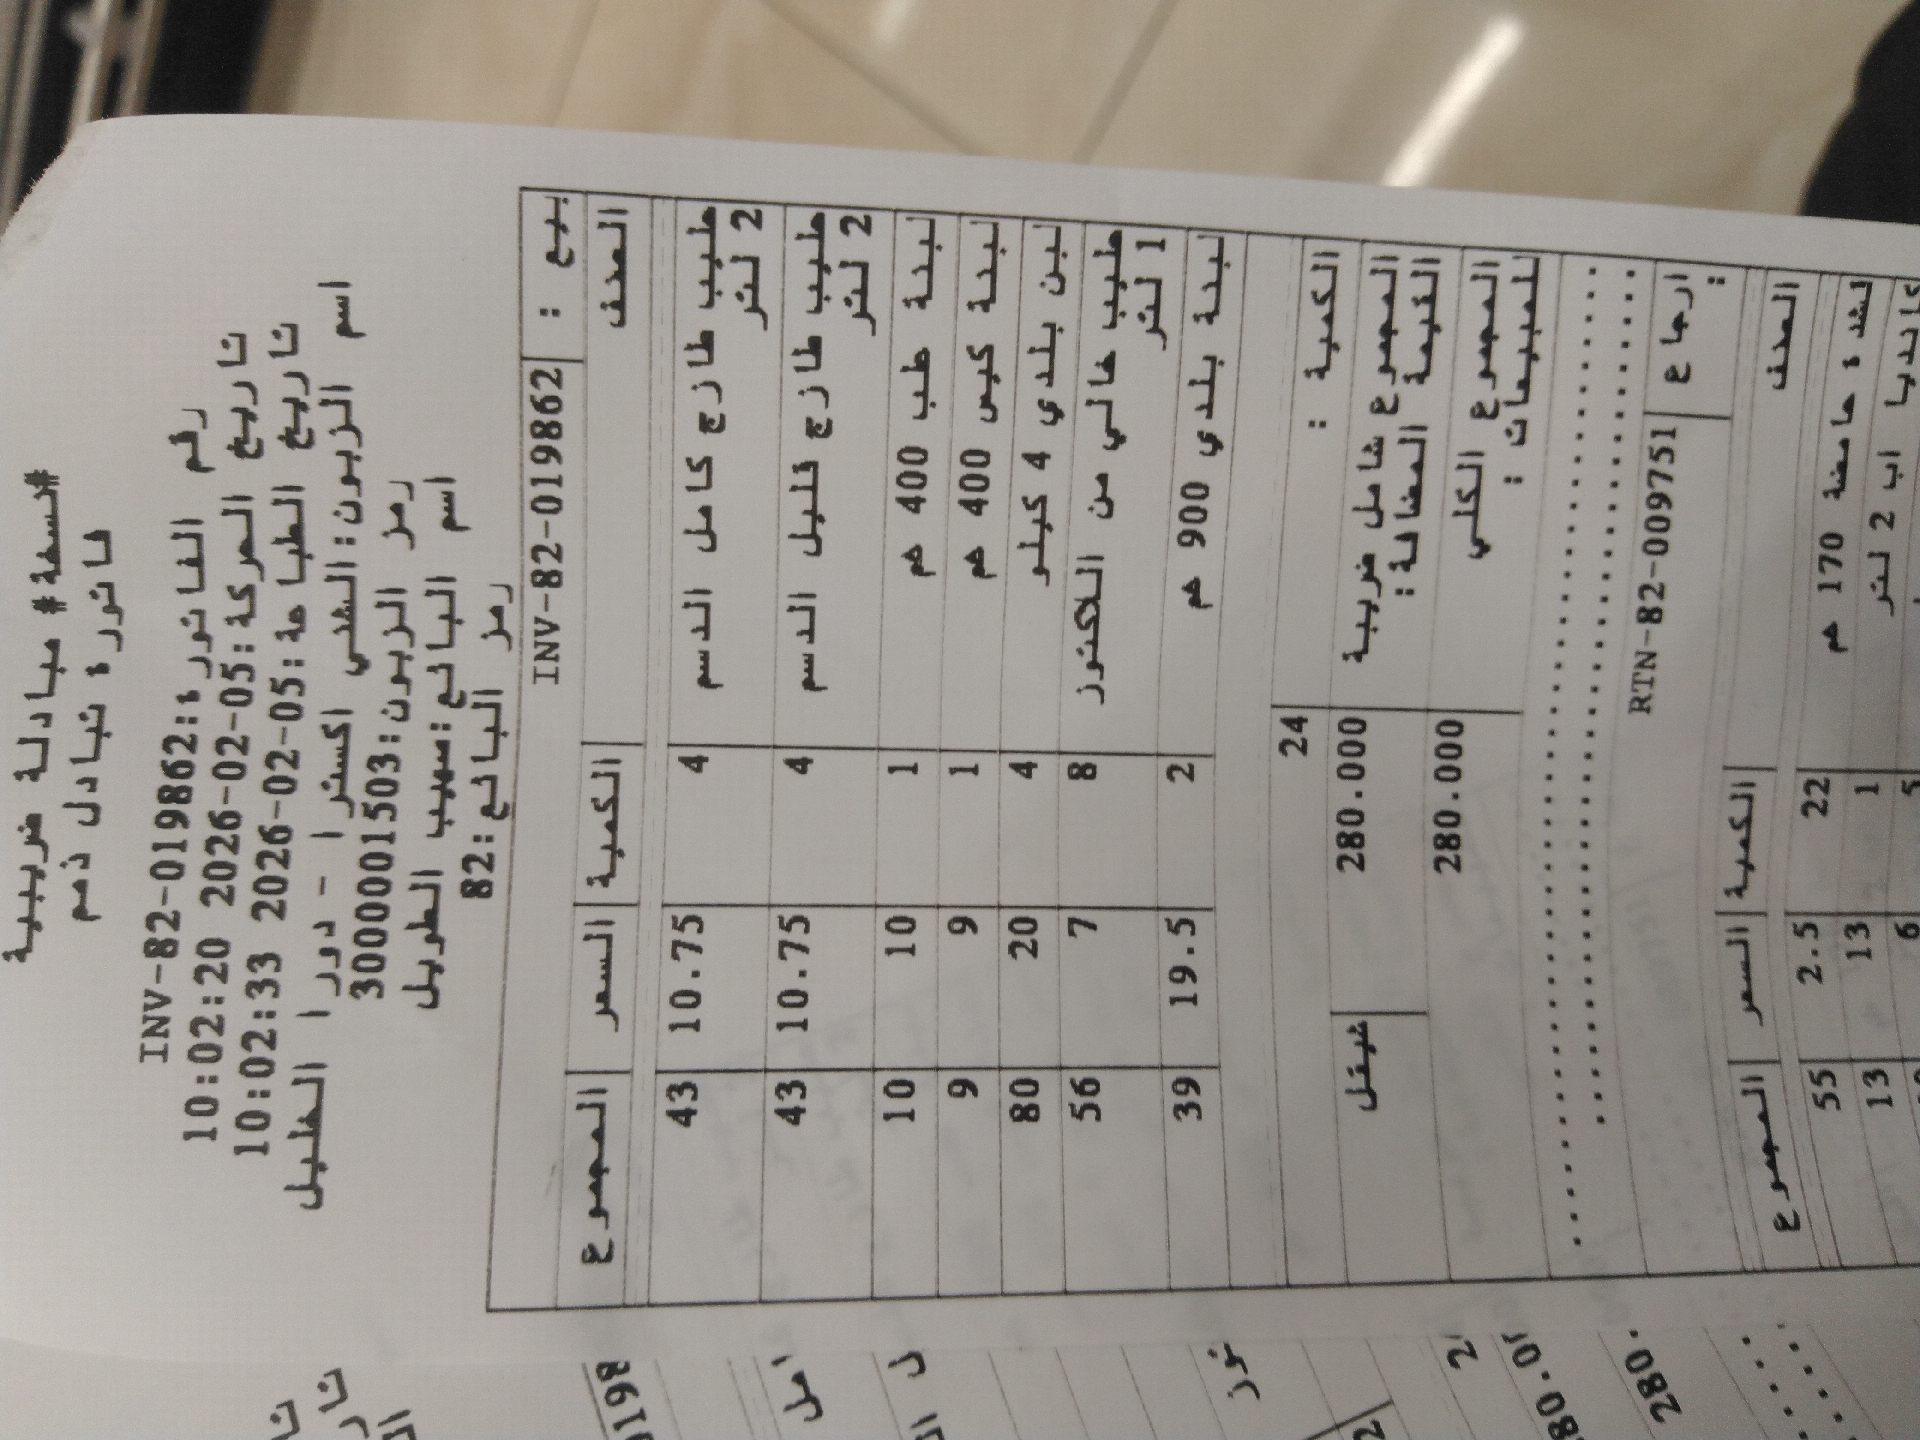 #نسخة# مبادلة ضريبية
فاتورة تبادل ذمم
رقم الفاتورة:INV-82-019862
تاريخ الحركة:2026-02-05 10:02:20
تاريخ الطباعة:2026-02-05 10:02:33
اسم الزبون:الشني اكسترا - دورا الخليل
رمز الزبون:3000001503
اسم البائع:مهيب الطويل
رمز البائع:82
بيع : INV-82-019862
الصنف الكمية السعر المجموع
حليب طازج كامل الدسم 2 لتر 4 10.75 43
حليب طازج قليل الدسم 2 لتر 4 10.75 43
لبنة علب 400 غم 1 10 10
لبنة كيس 400 غم 1 9 9
لبن بلدي 4 كيلو 4 20 80
حليب خالي من اللاكتوز 1 لتر 8 7 56
لبنة بلدي 900 غم 2 19.5 39
الكمية : 24
المجموع شامل ضريبة القيمة المضافة: 280.000 شيقل
المجموع الكلي للمبيعات : 280.000
ارجاع : RTN-82-009751
الصنف الكمية السعر المجموع
قشدة حامضة 170 غم 22 2.5 55
اب 2 لتر 1 13 13